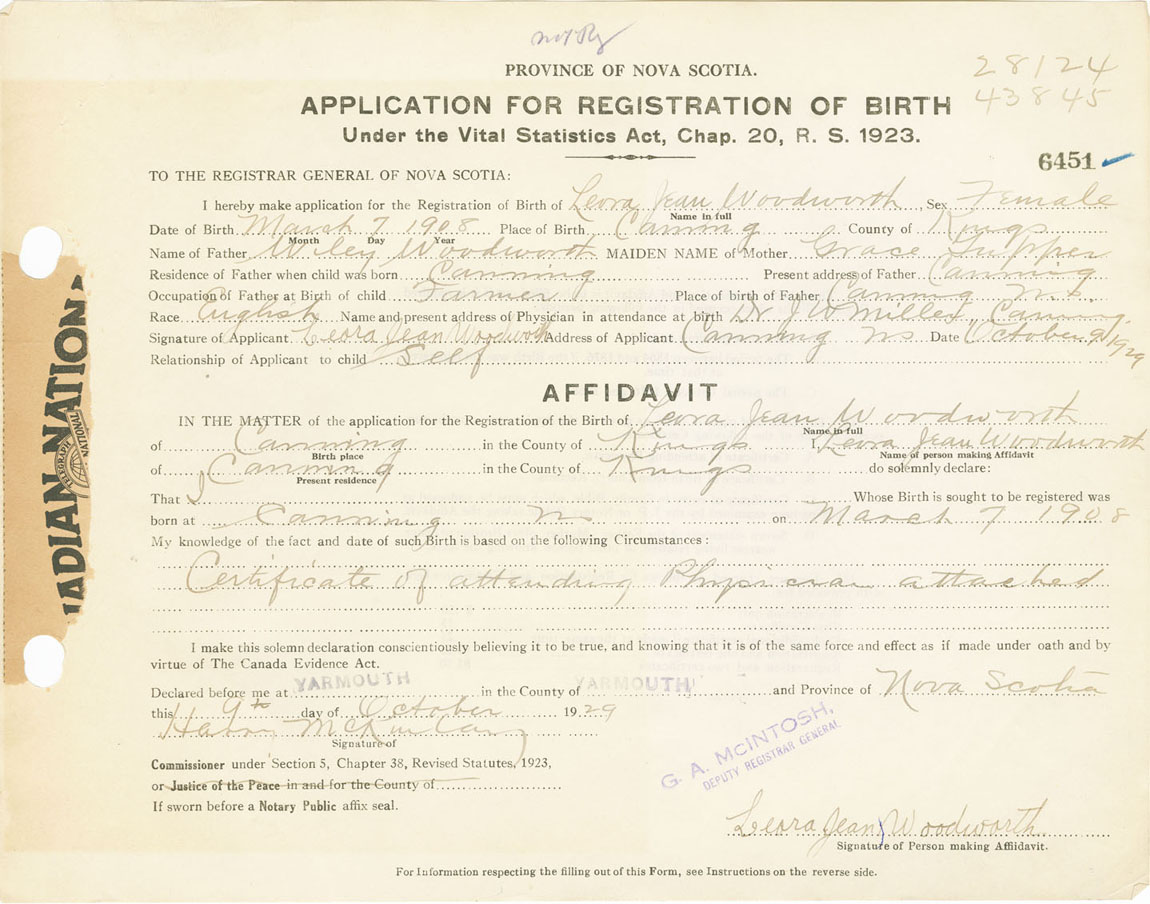 28124
PROVINCE OF NOVA SCOTIA.
43845
APPLICATION FOR REGISTRATION OF BIRTH
Under the Vital Statistics Act, Chap. 20, R. S. 1923.
6451
TO THE REGISTRAR GENERAL OF NOVA SCOTIA:
I hereby make application for the Registration of Birth of Leora Jean Woodworth, Sex Female
Name in full
Date of Birth March 7 1908 Place of Birth Canning County of Kings
Month Day Year
Name of Father Wiley Woodworth MAIDEN NAME of Mother Grace Tupper
Residence of Father when child was born Canning Present address of Father Canning
Occupation of Father at Birth of child Farmer Place of birth of Father Canning N.S.
Race English Name and present address of Physician in attendance at birth Dr J W Miller, Canning
Signature of Applicant Leora Jean Woodworth Address of Applicant Canning NS Date October 9/1929
Relationship of Applicant to child Self
AFFIDAVIT
IN THE MATTER of the application for the Registration of the Birth of Leora Jean Woodworth
Name in full
of Canning in the County of Kings I, Leora Jean Woodworth
Birth place Name of person making Affidavit
of Canning in the County of Kings do solemnly declare:
Present residence
That I Whose Birth is sought to be registered was
born at Canning NS on March 7 1908
My knowledge of the fact and date of such Birth is based on the following Circumstances:
Certificate of attending Physician attached
I make this solemn declaration conscientiously believing it to be true, and knowing that it is of the same force and effect as if made under oath and by
virtue of The Canada Evidence Act.
Declared before me at YARMOUTH in the County of YARMOUTH and Province of Nova Scotia
this 9th day of October 1929
Signature of
Commissioner under Section 5, Chapter 38, Revised Statutes, 1923,
or Justice of the Peace in and for the County of
If sworn before a Notary Public affix seal.
G. A. McINTOSH,
DEPUTY REGISTRAR GENERAL
Leora Jean Woodworth
Signature of Person making Affidavit.
For Information respecting the filling out of this Form, see Instructions on the reverse side.
ADIAN NATIONA
TELEGRAPH
NATIONAL